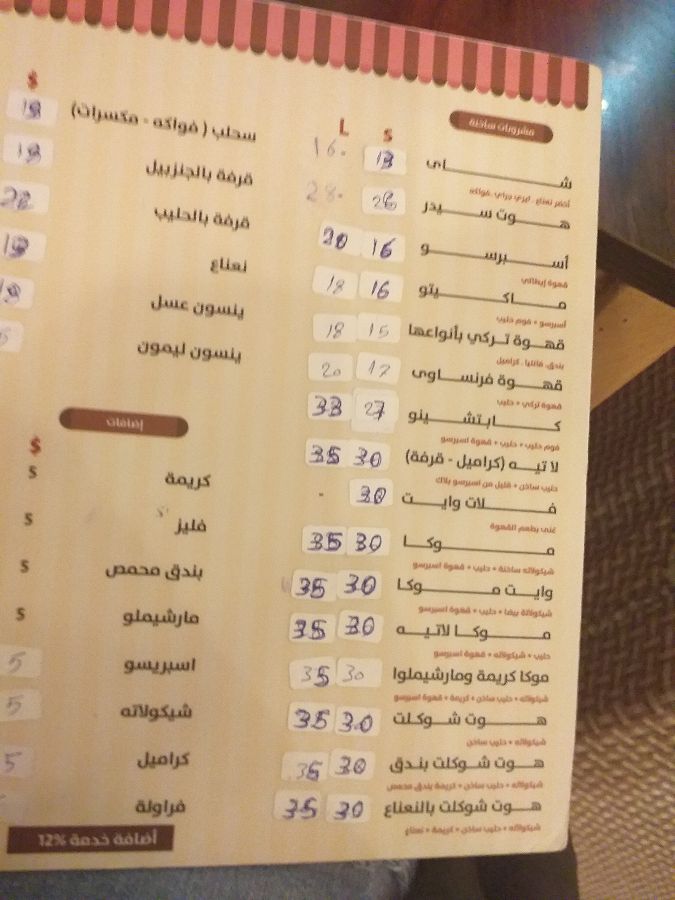 مشروبات ساخنة
S L
شاى 13 16
أخضر نعناع - ايرل جراي - فواكه
هوت سيدر 26 28
أسبرسو 16 20
قهوة إيطالي
ماكيتو 16 18
أسبرسو + فوم حليب
قهوة تركي بأنواعها 15 18
بندق، فانليا، كراميل
قهوة فرنساوى 17 20
قهوة تركي + حليب
كابتشينو 27 33
فوم حليب + حليب + قهوة اسبرسو
لاتيه (كراميل - قرفة) 30 35
حليب ساخن + قليل من اسبرسو بلاك
فلات وايت 30 -
غنى بطعم القهوة
موكا 30 35
شيكولاته ساخنة + حليب + قهوة اسبرسو
وايت موكا 30 35
شيكولاتة بيضا + حليب + قهوة اسبرسو
موكا لاتيه 30 35
حليب + شيكولاته + قهوة اسبرسو
موكا كريمة ومارشيملوا 30 35
شيكولاته + حليب ساخن + كريمة + قهوة اسبرسو
هوت شوكلت 30 35
شيكولاته + حليب ساخن
هوت شوكلت بندق 30 35
شيكولاته + حليب ساخن + كريمة بندق محمص
هوت شوكلت بالنعناع 30 35
شيكولاته + حليب ساخن + كريمة + نعناع
S
سحلب (فواكه - مكسرات) 18
قرفة بالجنزبيل 18
قرفة بالحليب
نعناع
ينسون عسل
ينسون ليمون
إضافات
S
كريمة 5
فليز 5
بندق محمص 5
مارشيملو 5
اسبريسو 5
شيكولاته 5
كراميل 5
فراولة
أضافة خدمة 12%